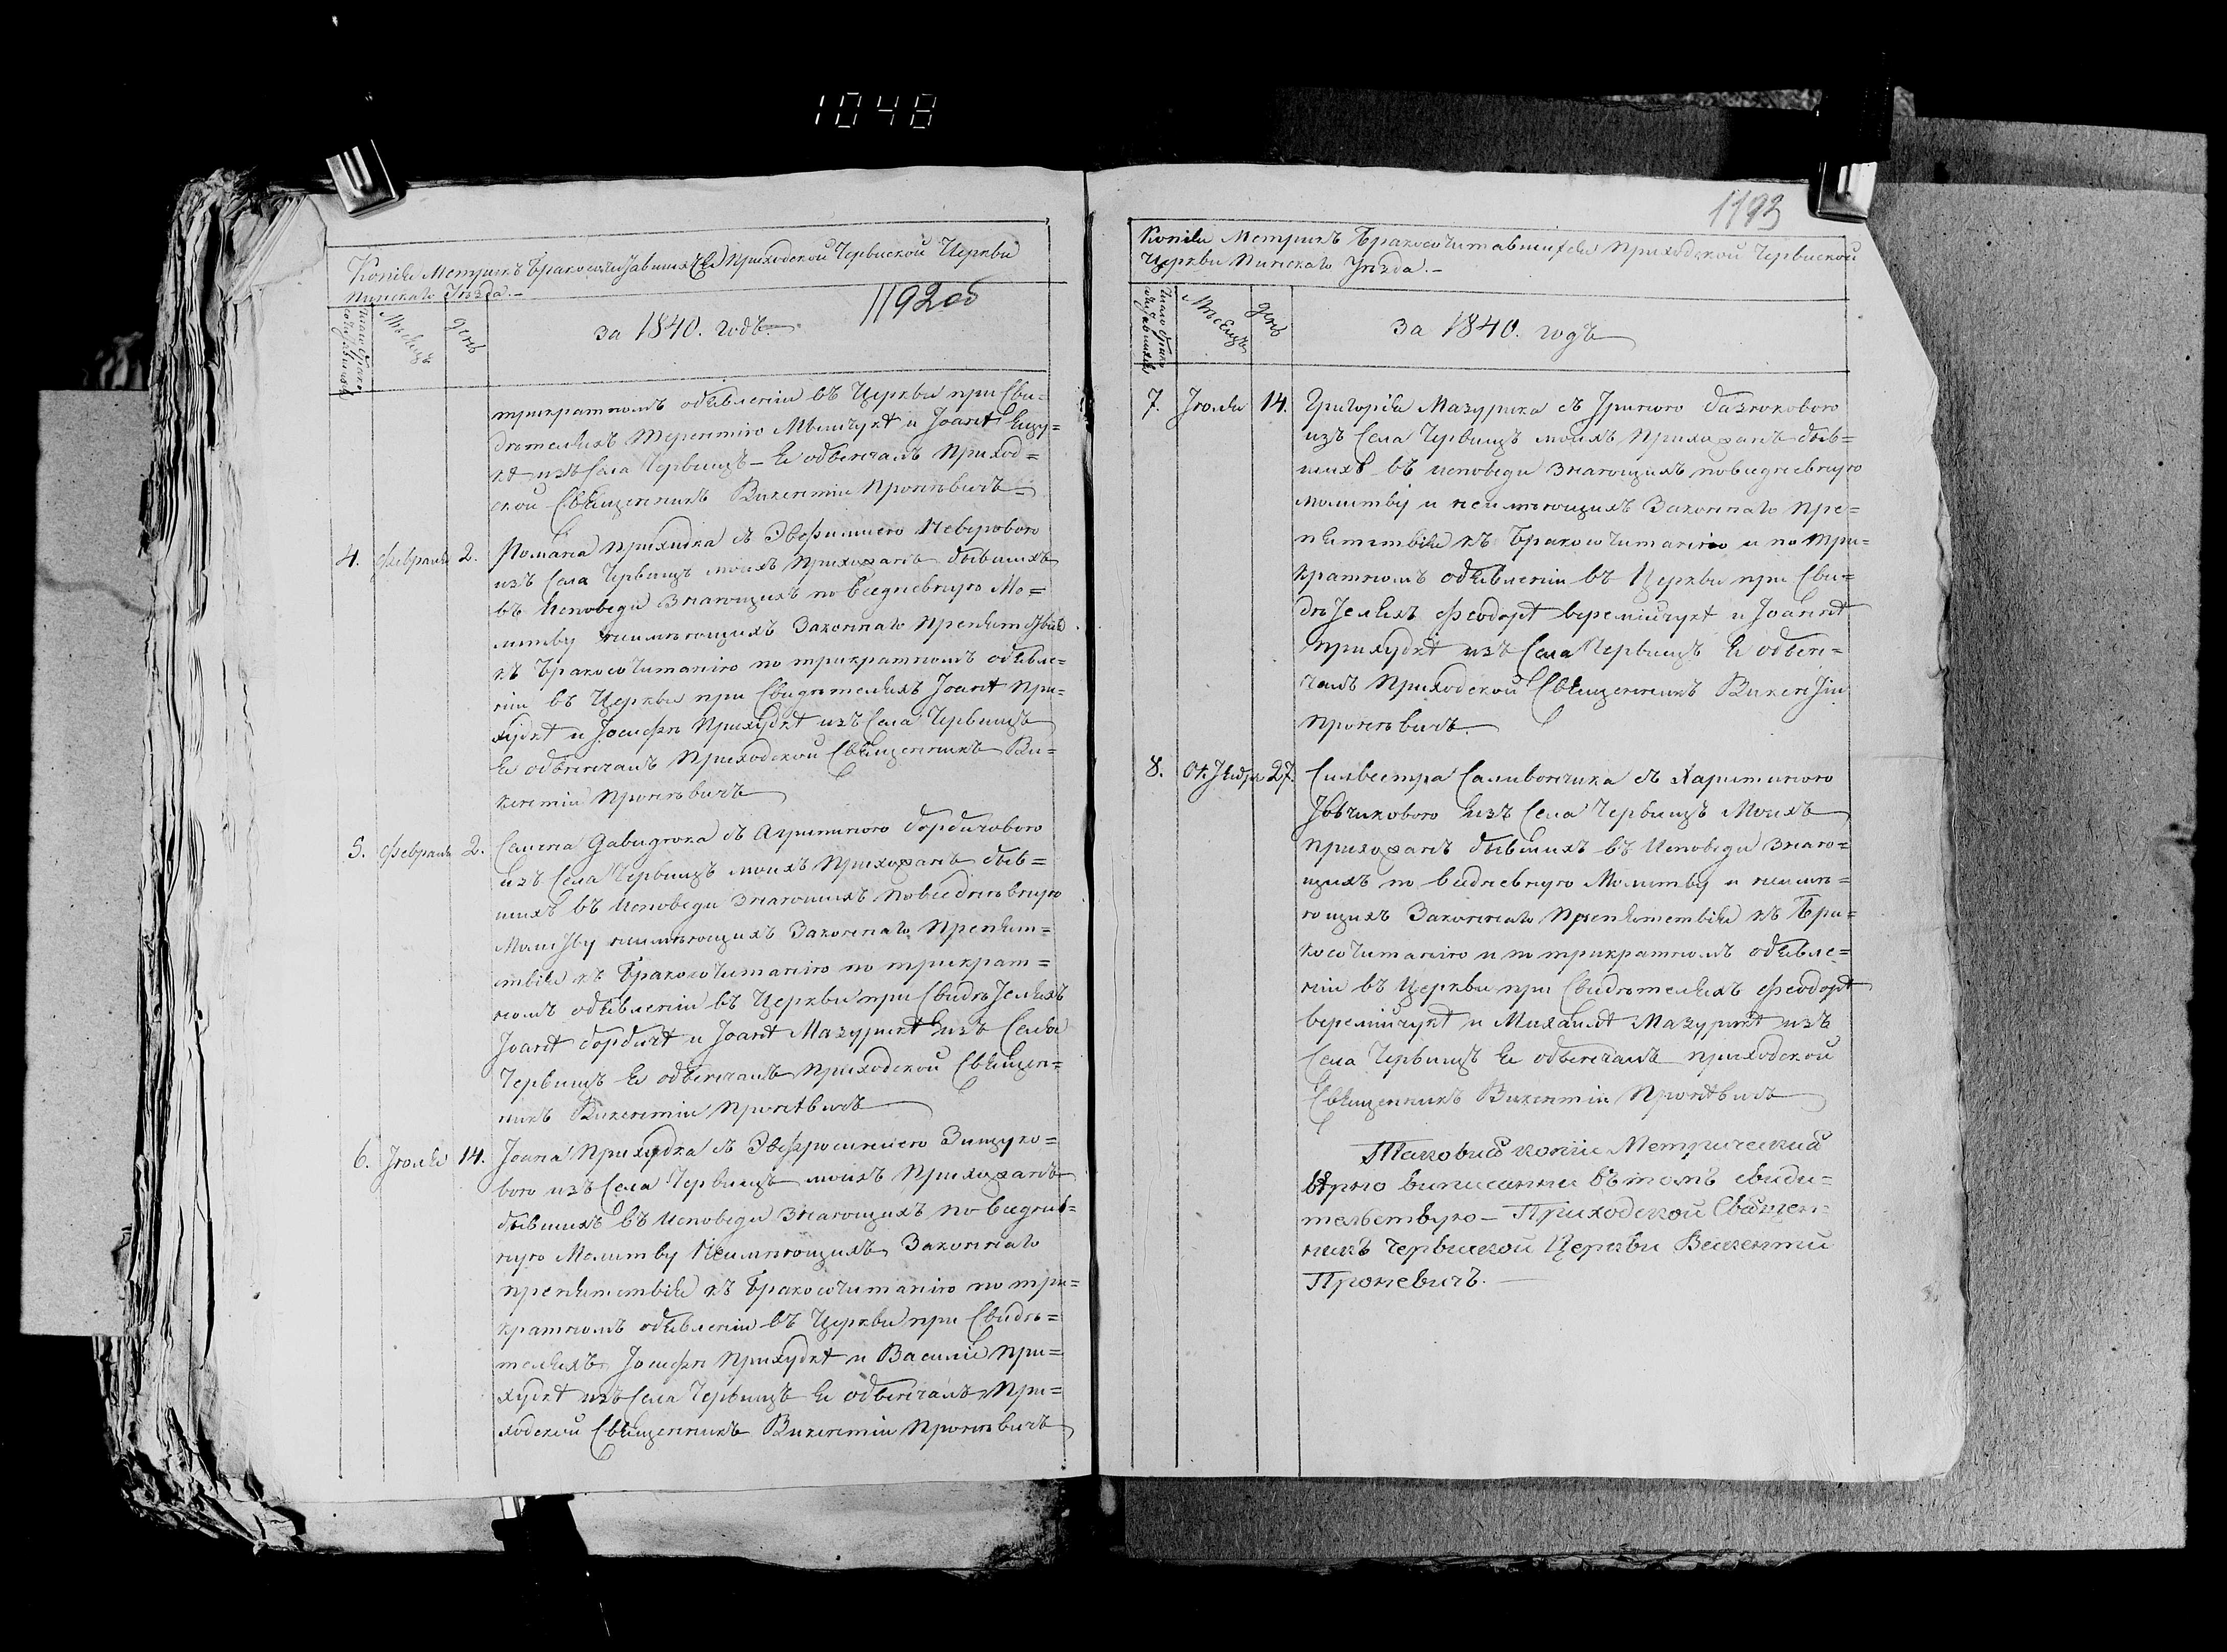 1048
Копія Метрикъ Бракосочитавшихся Приходской Червиской Церкви
Пинскаго Уѣзда.-
1192 об
Число брако
сочитавшихся
Мѣсяцъ
день
за 1840. годъ.
трикратномъ объявленіи въ Церкви при Сви=
дѣтеляхъ Терентію и Іоанѣ
изъ Села Червищъ - и обвенчалъ Приход=
ской Священникъ Викентіи Проневичъ
4. Февраля 2. Романа Прихидка съ Эвфимиею
изъ Села Червищъ моихъ Прихожанъ бывшихъ
въ Исповеди Знающихъ повседневную Мо=
литву неимѣющихъ Законнаго Препятствія
къ Бракосочитанію по трикратномъ объявле=
ніи въ Церкви при Свидѣтеляхъ Іоанѣ При=
худкѣ и Іосифѣ Прихудкѣ изъ Села Червищъ
и обвенчалъ Приходской Священникъ Ви=
кентіи Проневичъ
5. Февраля 2. Семена Давидюка съ Агрипиною Бордичовою
изъ Села Червищъ моихъ Прихожанъ быв=
шихъ въ Исповеди Знающихъ Повседневную
Молитву неимѣющихъ Законнаго Препят=
ствія къ Бракосочитанію по трикрат=
номъ объявленіи въ Церкви при Свидѣтеляхъ
Іоанѣ Бордичѣ и Іоанѣ Мазурикѣ изъ Села
Червищъ и обвенчалъ Приходской Священ=
никъ Викентіи Пронѣвичъ
6. Іюля 14. Іоана Прихудка съ Эвфросиниею Зищуко=
вою изъ Села Червищъ моихъ Прихожанъ
бывшихъ въ Исповеди Знающихъ повседнев=
ную Молитву Неимѣющихъ Законнаго
препятствія къ Бракосочитанію по три=
кратномъ объявленіи въ Церкви при Свидѣ=
теляхъ Іосифѣ Прихудкѣ и Василіе При=
худкѣ изъ Села Червищъ и обвенчалъ При=
ходской Священникъ Викентіи Проневичъ
1193
Копія Метрикъ Бракосочитавшихся Приходской Червиской
Церкви Пинскаго Уѣзда.-
Число брако
сочитавшихся
Мѣсяцъ
день
за 1840. годъ
7. Іюля 14. Григорія Мазурика съ Ириною Базюковою
изъ Села Червищъ моихъ Прихожанъ быв=
шихъ въ исповеди Знающихъ повседневную
молитву и неимѣющихъ Законнаго Пре=
пятствія къ Бракосочитанію и по три=
кратномъ объявленіи въ Церкви при Сви=
дѣтеляхъ Феодорѣ Веремійчукѣ и Іоаннѣ
Прихудкѣ изъ Села Червищъ и обвен=
чалъ Приходской Священникъ Викентіи
Проневичъ.
8. Октября 27. Сильвестра Саливончика съ Харитиною
Іовчиковою изъ Села Червищъ Моихъ
прихожанъ бывшихъ въ Исповеди Знаю=
щихъ повседневную Молитву и неимѣ=
ющихъ Законнаго Препятствія къ Бра=
косочитанію и по трикратномъ объявле=
ніи въ Церкви при Свидѣтеляхъ Феодорѣ
Веремійчукѣ и Михаилѣ Мазурикѣ изъ
Села Червищъ и обвенчалъ приходской
Священникъ Викентіи Пронѣвичъ
Таковыя копіи Метрическія
вѣрно виписанни въ томъ свиди=
тельствую - Приходской Священ=
никъ Червиской Церкви Викентий
Проневичъ.